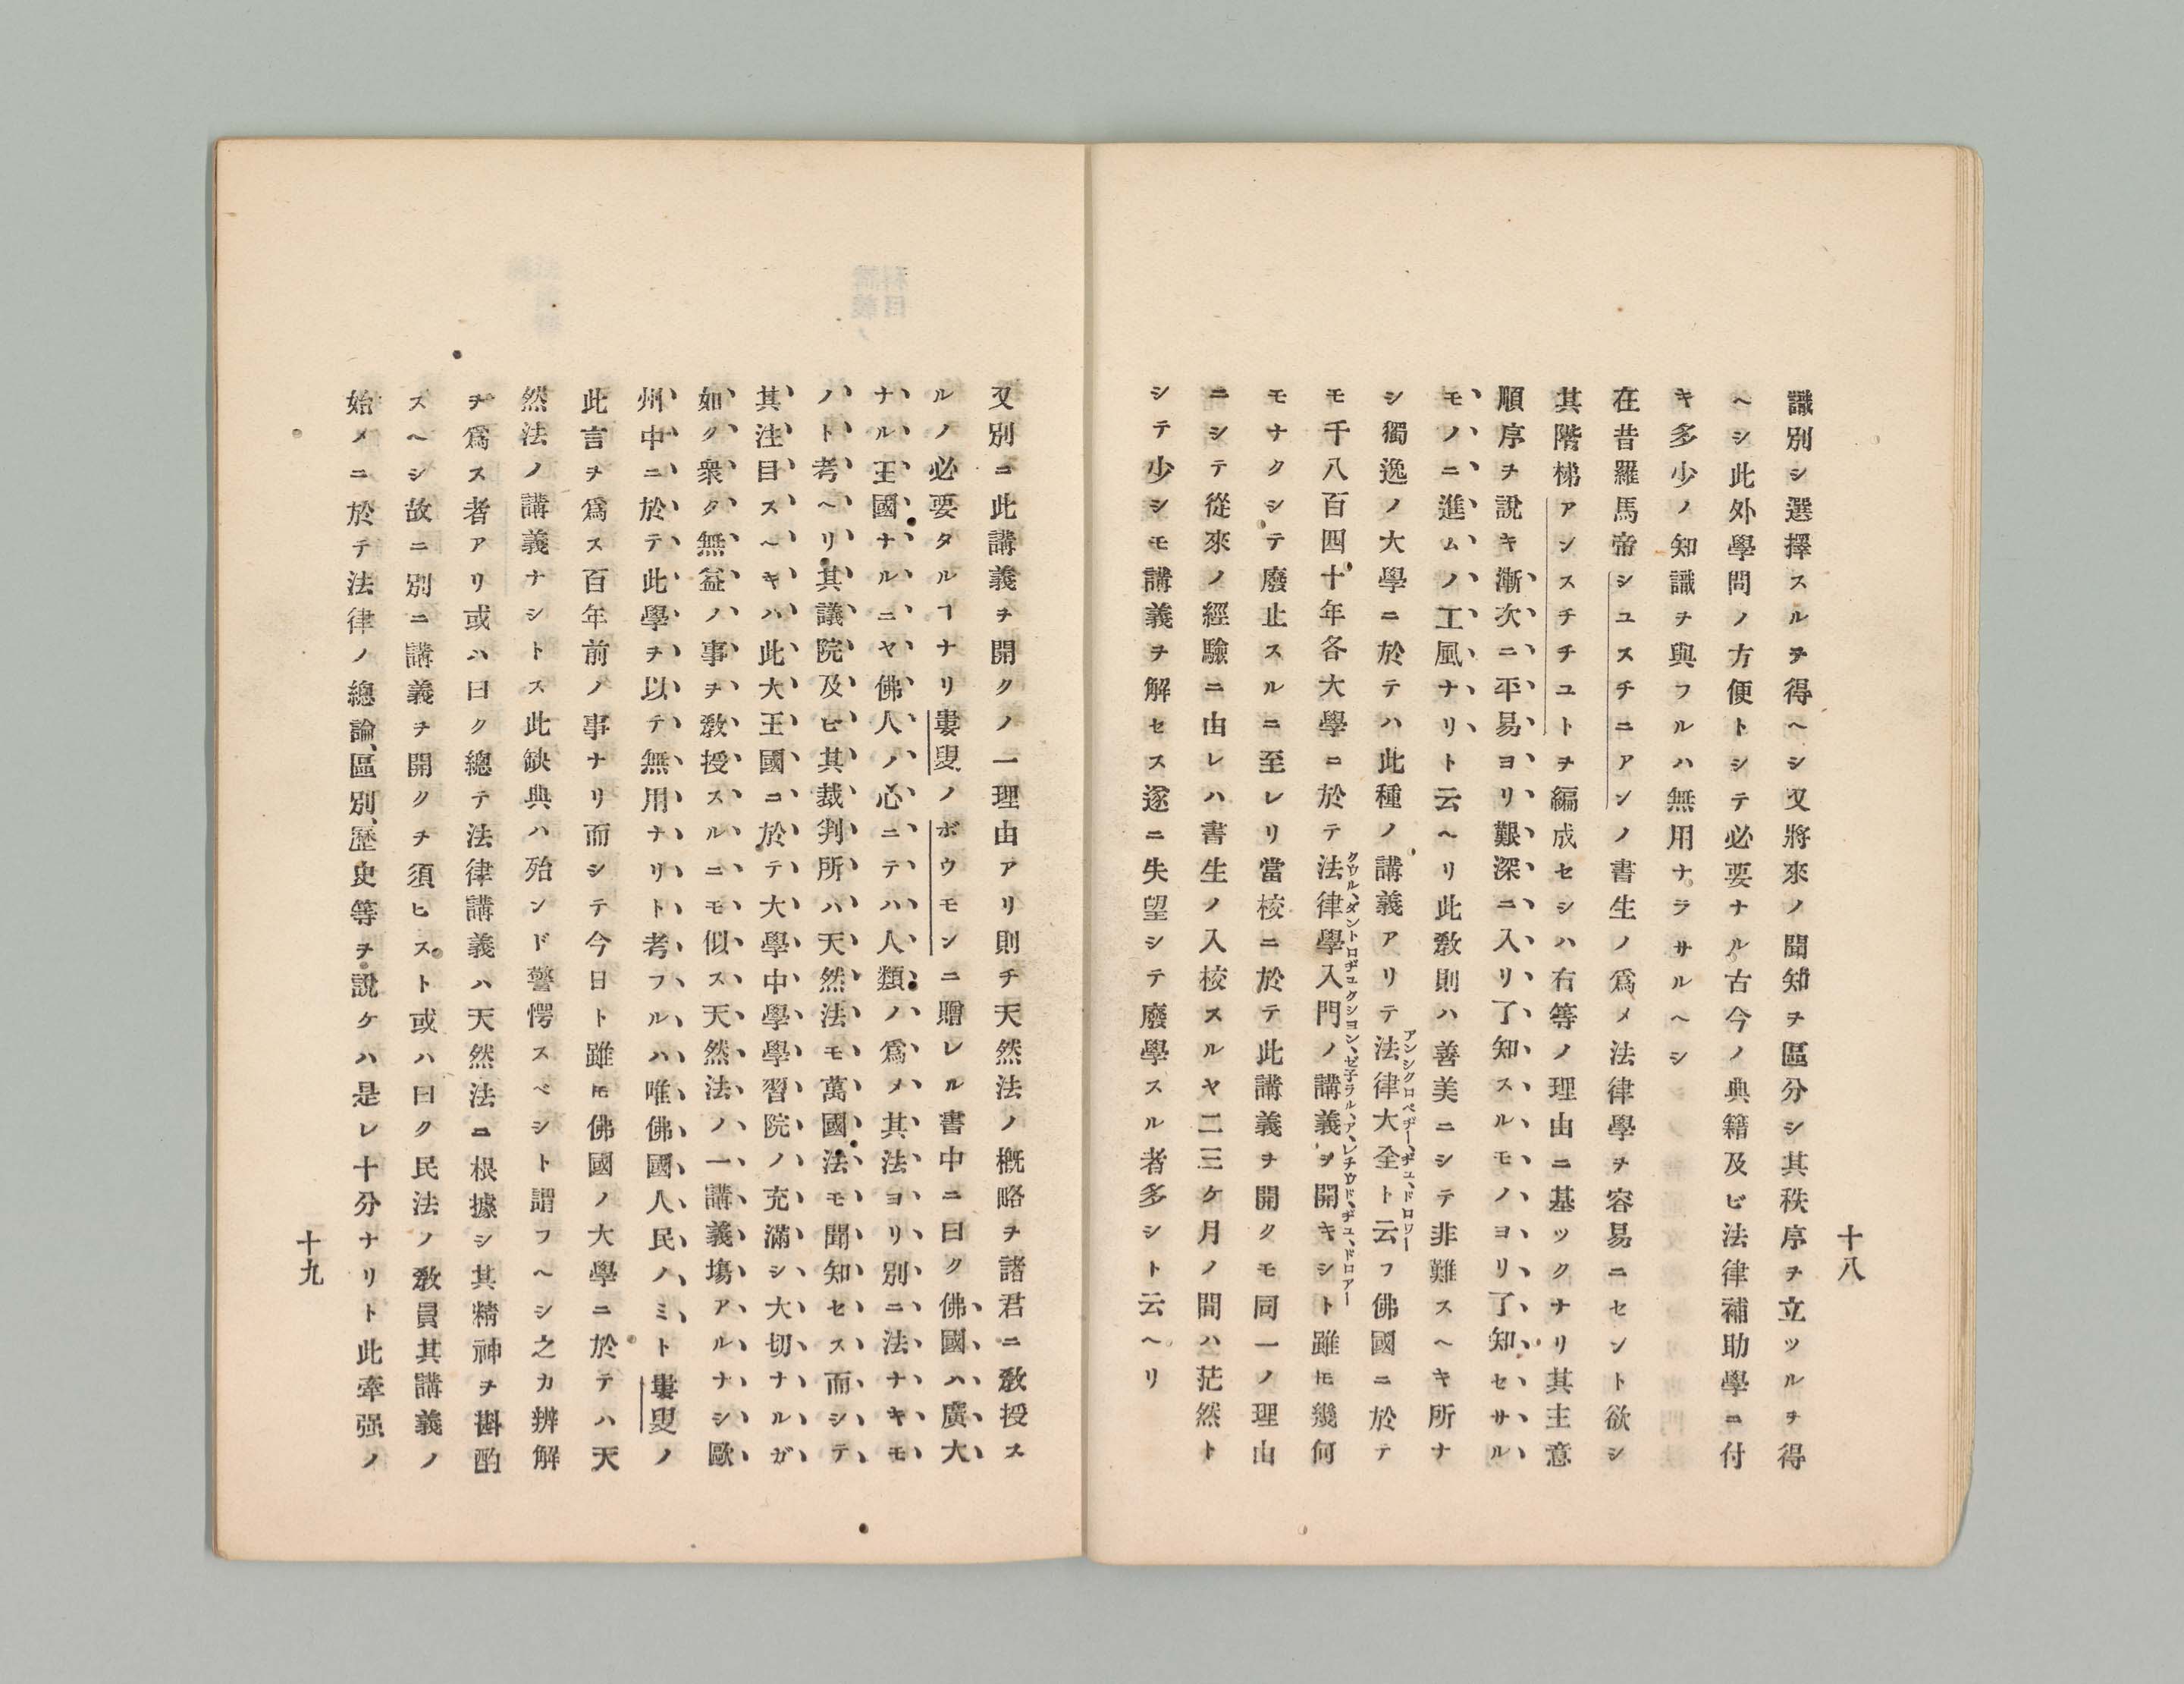 十八
識別シ選擇スルヲ得ヘシ又將來ノ聞知ヲ區分シ其秩序ヲ立ツルヲ得
ヘシ此外學問ノ方便トシテ必要ナル古今ノ典籍及ビ法律補助學ニ付
キ多少ノ知識ヲ與フルハ無用ナラサルヘシ
在昔羅馬帝シユスチニアンノ書生ノ爲メ法律學ヲ容易ニセント欲シ
其階梯アンスチチユトヲ編成セシハ右等ノ理由ニ基ックナリ其主意
順序ヲ說キ漸次ニ平易ヨリ艱深ニ入リ了知スルモノヨリ了知セサル
モノニ進ムノ工風ナリト云ヘリ此敎則ハ善美ニシテ非難スヘキ所ナ
シ獨逸ノ大學ニ於テハ此種ノ講義アリテ法律大全ト云フ佛國ニ於テ
アンシクロペヂー、ヂュ、ドロワー
モ千八百四十年各大學ニ於テ法律學入門ノ講義ヲ開キシト雖𪜈幾何
クウル、ダントロヂュクション、ゼ子ラル、ア、レチウド、ヂュ、ドロアー
モナクシテ廢止スルニ至レリ當校ニ於テ此講義ヲ開クモ同一ノ理由
ニシテ從來ノ經驗ニ由レハ書生ノ入校スルヤ二三ケ月ノ間ハ茫然ト
シテ少シモ講義ヲ解セス遂ニ失望シテ廢學スル者多シト云ヘリ
又別ニ此講義ヲ開クノ一理由アリ則チ天然法ノ槪略ヲ諸君ニ敎授ス
ルノ必要タルヿナリ婁叟ノボウモンニ贈レル書中ニ曰ク佛國ハ廣大
ナル王國ナルニヤ佛人ノ心ニテハ人類ノ爲メ其法ヨリ別ニ法ナキモ
ノト考ヘリ其議院及ヒ其裁判所ハ天然法モ萬國法モ聞知セス而シテ
其注目スヘキハ此大王國ニ於テ大學中學學習院ノ充滿シ大切ナルガ
如ク衆タ無益ノ事ヲ敎授スルニモ似ス天然法ノ一講義塲アルナシ歐
州中ニ於テ此學ヲ以テ無用ナリト考フルハ唯佛國人民ノミト婁叟ノ
此言ヲ爲ス百年前ノ事ナリ而シテ今日ト雖𪜈佛國ノ大學ニ於テハ天
然法ノ講義ナシトス此缺典ハ殆ンド警愕スベシト謂フヘシ之カ辨解
ヲ爲ス者アリ或ハ曰ク總テ法律講義ハ天然法ニ根據シ其精神ヲ斟酌
スヘシ故ニ別ニ講義ヲ開クヲ須ヒスト或ハ曰ク民法ノ敎員其講義ノ
始メニ於テ法律ノ總論、區別、歷史等ヲ說ケハ是レ十分ナリト此牽强ノ
十九